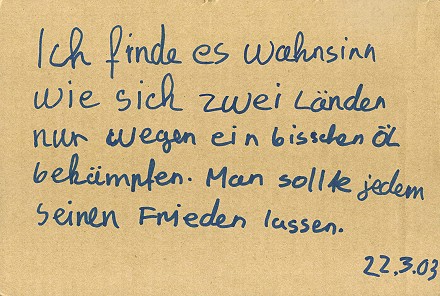 Ich finde es wahnsinn
wie sich zwei Länder
nur wegen ein bisschen Öl
bekämpfen. Man sollte jedem
seinen Frieden lassen.
22.3.03